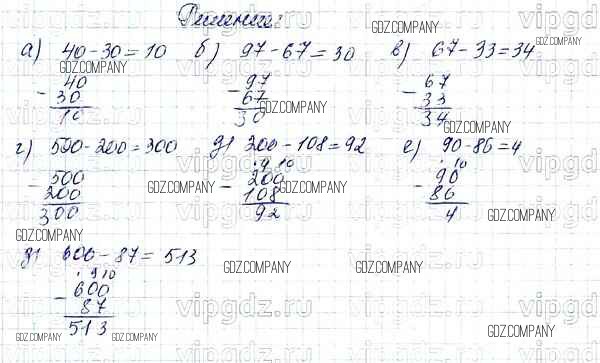 Решение:
а) 40-30=10 б) 97-67=30 в) 67-33=34
- 40
30
10
- 97
67
30
- 67
33
34
г) 500-200=300 д) 200-108=92 е) 90-86=4
- 500
200
300
. 9 10
- 200
108
92
. 10
- 90
86
4
600-87=513
. 9 10
- 600
87
513
GDZ.COMPANY
GDZ.COMPANY
GDZ.COMPANY
GDZ.COMPANY
GDZ.COMPANY
GDZ.COMPANY
GDZ.COMPANY
GDZ.COMPANY
GDZ.COMPANY
GDZ.COMPANY
GDZ.COMPANY
GDZ.COMPANY
GDZ.COMPANY
GDZ.COMPANY
vipgdz.ru
vipgdz.ru